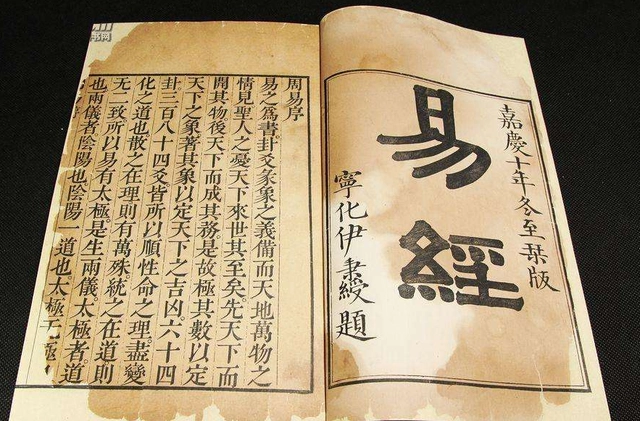 嘉慶十年冬至栞版
易經
寧化伊秉綬題
周易序
易之爲書卦爻彖象之義備而天地萬物之
情見聖人之憂天下來世其至矣。先天下而
開其物後天下而成其務。是故極其數以定
天下之象著其象以定天下之吉凶六十四
卦三百八十四爻皆所以順性命之理。盡變
化之道也散之在理則有萬殊。統之在道則
无二致所以易有太極。是生兩儀。太極者。道
也兩儀者陰陽也陰陽一道也太極无極
书网